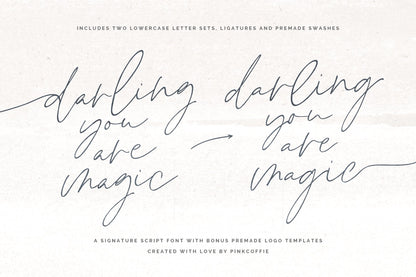 INCLUDES TWO LOWERCASE LETTER SETS, LIGATURES AND PREMADE SWASHES
darling
you
are
magic
darling
you
are
magic
A SIGNATURE SCRIPT FONT WITH BONUS PREMADE LOGO TEMPLATES
CREATED WITH LOVE BY PINKCOFFIE